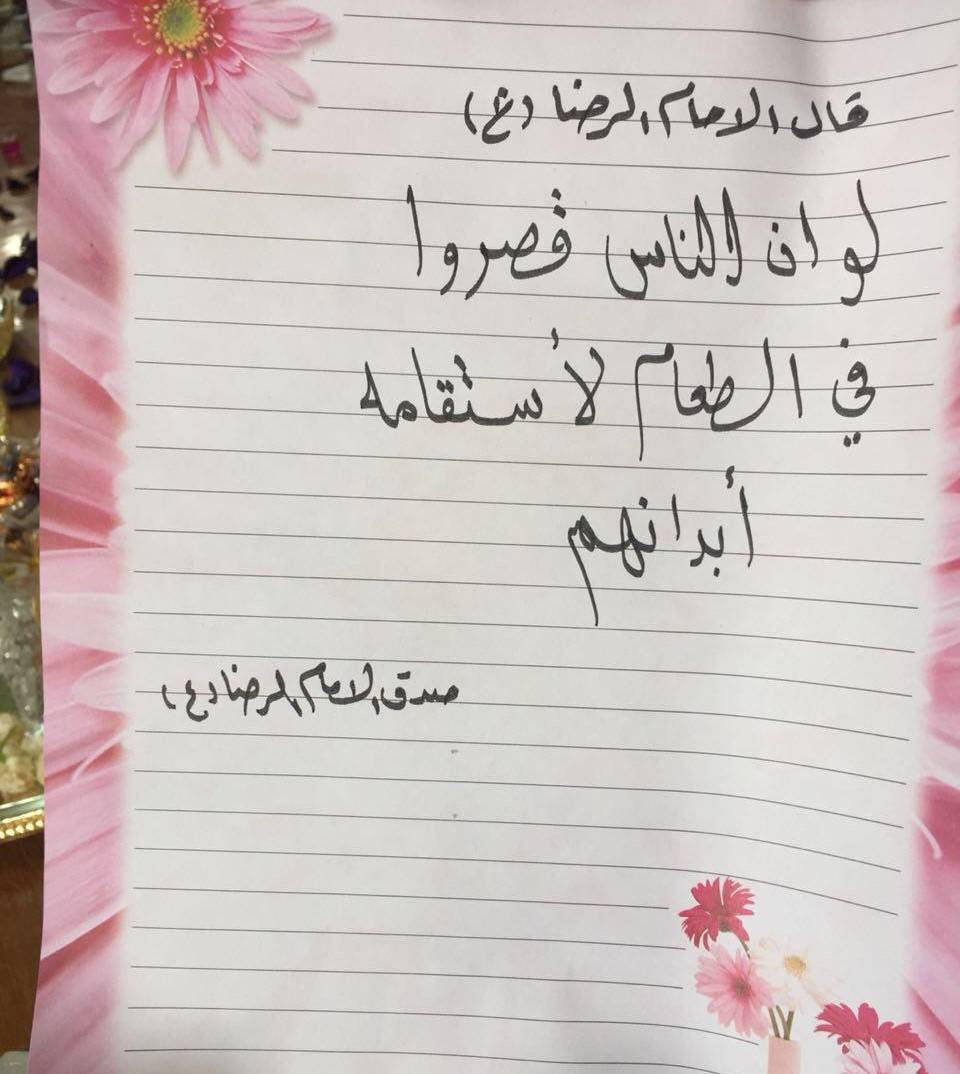 قال الامام الرضا (ع)
لو ان الناس قصروا
في الطعام لأستقامه
أبدانهم
صدق الامام الرضا (ع)